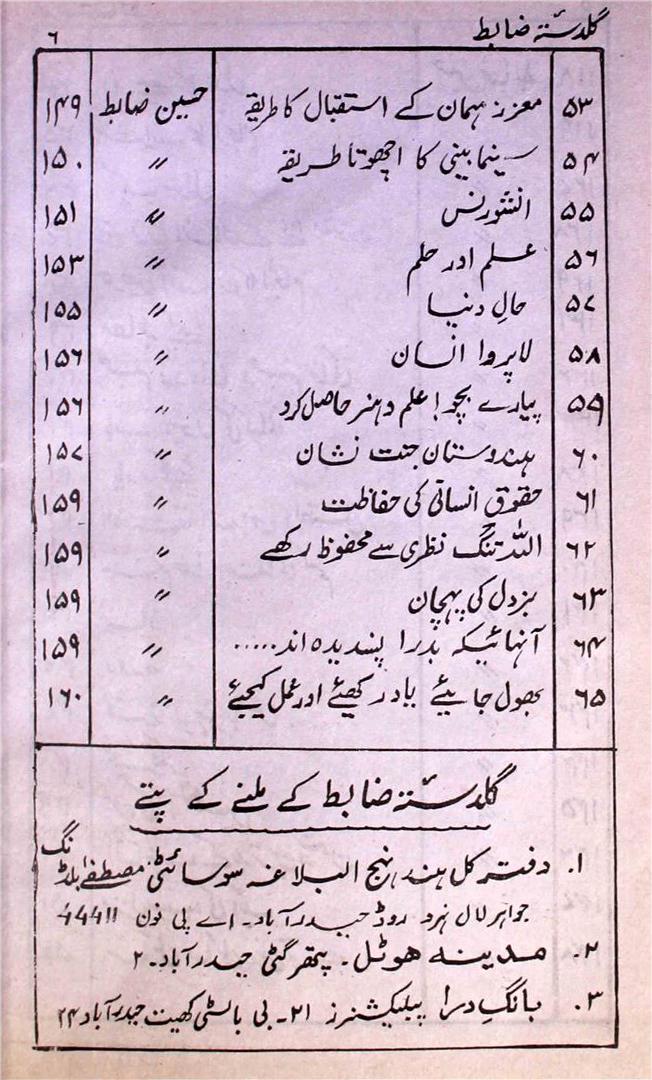 گلدستۂ ضابط ۶
۵۳ معزز مہمان کے استقبال کا طریقہ حسین ضابط ۱۴۹
۵۴ سینما بینی کا اچھوتا طریقہ 〃 ۱۵۰
۵۵ انشورنس 〃 ۱۵۱
۵۶ علم اور حلم 〃 ۱۵۳
۵۷ حالِ دنیا 〃 ۱۵۵
۵۸ لاپروا انسان 〃 ۱۵۶
۵۹ پیارے بچو! علم و ہنر حاصل کرو 〃 ۱۵۶
۶۰ ہندوستان جنت نشان 〃 ۱۵۷
۶۱ حقوق انسانی کی حفاظت 〃 ۱۵۹
۶۲ اللہ تنگ نظری سے محفوظ رکھے 〃 ۱۵۹
۶۳ بزدل کی پہچان 〃 ۱۵۹
۶۴ آنہائیکہ بدرا پسندیدہ اند..... 〃 ۱۵۹
۶۵ بھول جایئے یاد رکھیئے اور عمل کیجیئے 〃 ۱۶۰
گلدستۂ ضابط کے ملنے کے پتے
۱. دفتر کل ہند نہج البلاغہ سوسائٹی، مصطفےٰ بلڈنگ
جواہر لال نہرو روڈ حیدرآباد۔ اے پی فون 44411
۲. مدینہ ہوٹل۔ پتھر گٹی حیدرآباد۔ ۲
۳. بانگِ درا پبلیکشنرز ۲۱۔ بی بالسٹی کھیت حیدرآباد ۲۴